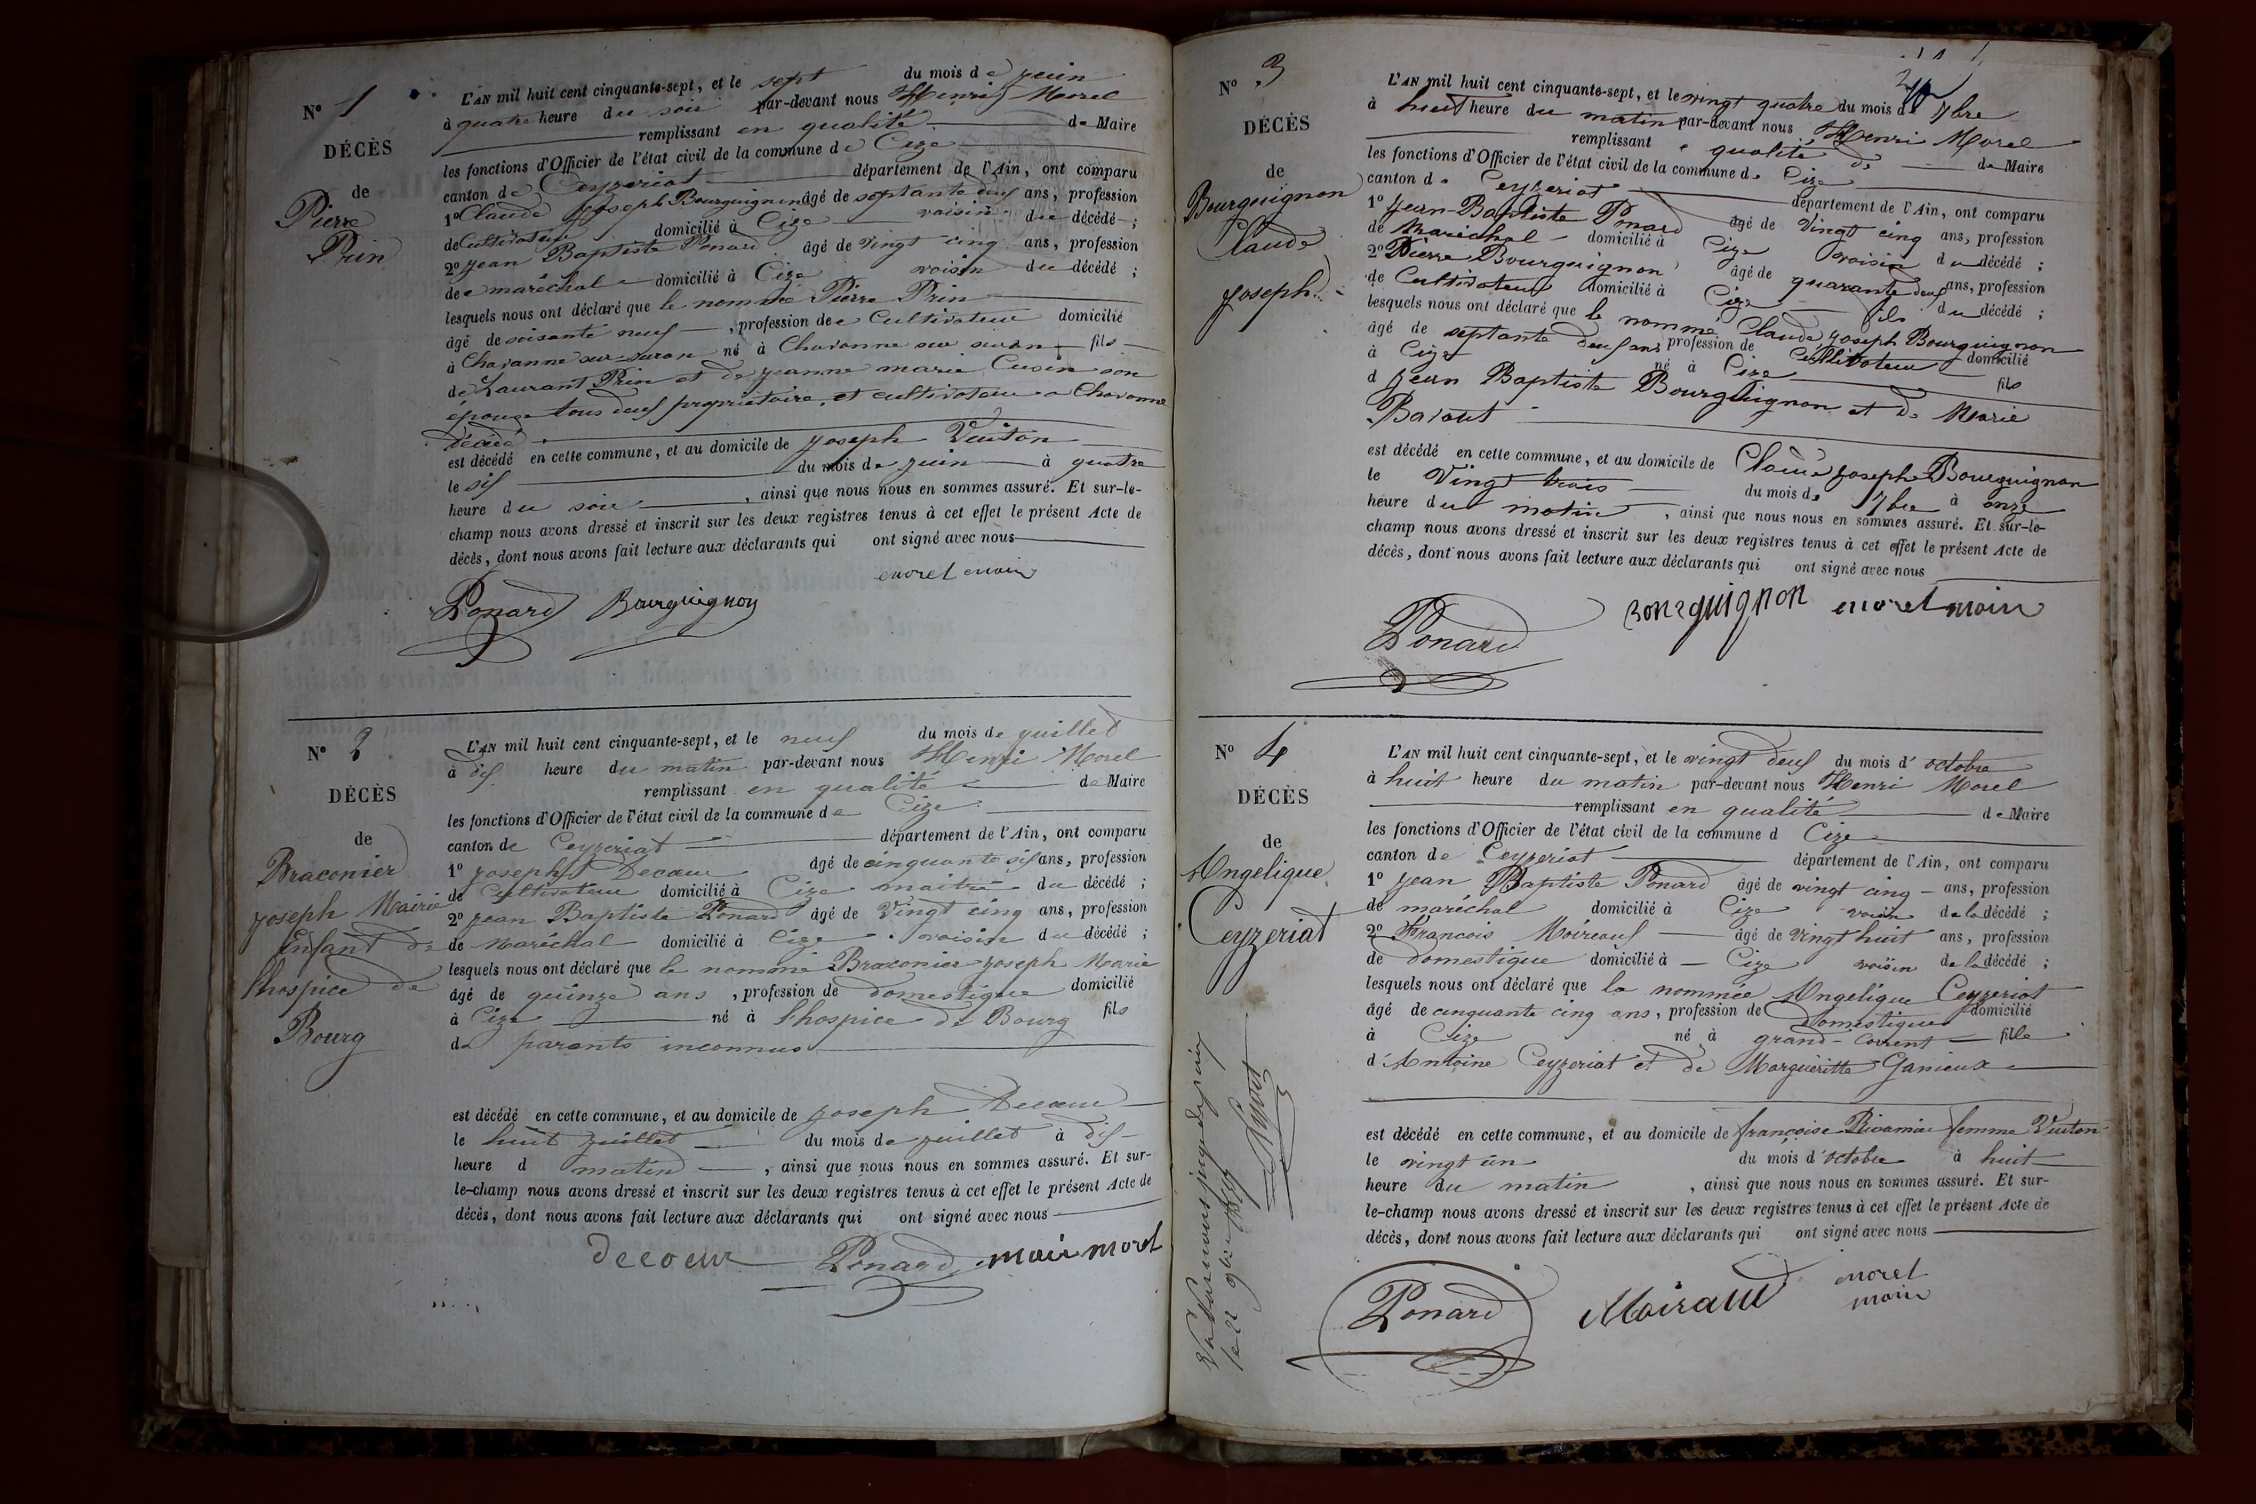 N° 1
DÉCÈS
de
Pierre
Prin
L'AN mil huit cent cinquante-sept, et le sept du mois de juin
à quatre heure du soir par-devant nous Henri Morel
remplissant en qualité de Maire
les fonctions d'Officier de l'état civil de la commune de Cize
canton de Ceyzeriat département de l'Ain, ont comparu
1° Claude Joseph Bourguignon âgé de septante deux ans, profession
de Cultivateur domicilié à Cize voisin du décédé ;
2° Jean Baptiste Ponard âgé de vingt cinq ans, profession
de maréchal domicilié à Cize voisin du décédé ;
lesquels nous ont déclaré que le nommé Pierre Prin
âgé de soisante neuf, profession de Cultivateur domicilié
à Chavanne sur suran né à Chavanne sur suran fils
de Laurant Prin et de Jeanne marie Cusin son
épouse tous deux propriétaire et cultivateur a Chavanne
décédé
est décédé en cette commune, et au domicile de Joseph Vuiton
le six du mois de juin à quatre
heure du soir, ainsi que nous nous en sommes assuré. Et sur-le-
champ nous avons dressé et inscrit sur les deux registres tenus à cet effet le présent Acte de
décès, dont nous avons fait lecture aux déclarants qui ont signé avec nous
morel maire
Ponard Bourguignon
N° 2
DÉCÈS
de
Braconier
Joseph Mairie
Enfant de
l'hospice de
Bourg
L'AN mil huit cent cinquante-sept, et le neuf du mois de juillet
à dix heure du matin par-devant nous Henri Morel
remplissant en qualité de Maire
les fonctions d'Officier de l'état civil de la commune de Cize
canton de Ceyzeriat département de l'Ain, ont comparu
1° Joseph Decoeur âgé de cinquante six ans, profession
de Cultivateur domicilié à Cize maitre du décédé ;
2° Jean Baptiste Ponard âgé de Vingt cinq ans, profession
de Maréchal domicilié à Cize voisin du décédé ;
lesquels nous ont déclaré que le nommé Braconier Joseph Marie
âgé de quinze ans, profession de domestique domicilié
à Cize né à l'hospice de Bourg fils
de parents inconnus
est décédé en cette commune, et au domicile de Joseph Decoeur
le huit juillet du mois de juillet à dix
heure d matin, ainsi que nous nous en sommes assuré. Et sur-
le-champ nous avons dressé et inscrit sur les deux registres tenus à cet effet le présent Acte de
décès, dont nous avons fait lecture aux déclarants qui ont signé avec nous
decoeur Ponard maire morel
N° 3
DÉCÈS
de
Bourguignon
Claude
Joseph
L'AN mil huit cent cinquante-sept, et le vingt quatre du mois de 7bre
à huit heure du matin par-devant nous Henri Morel
remplissant qualité de de Maire
les fonctions d'Officier de l'état civil de la commune de Cize
canton de Ceyzeriat département de l'Ain, ont comparu
1° Jean-Baptiste Ponard âgé de Vingt cinq ans, profession
de Maréchal domicilié à Cize voisin du décédé ;
2° Pierre Bourguignon âgé de quarante deux ans, profession
de Cultivateur domicilié à Cize fils du décédé ;
lesquels nous ont déclaré que le nommé Claude Joseph Bourguignon
âgé de septante deux ans profession de Cultivateur domicilié
à Cize né à Cize fils
d Jean Baptiste Bourguignon et de Marie
Bavout
est décédé en cette commune, et au domicile de Claude Joseph Bourguignon
le Vingt trois du mois de 7bre à onze
heure du matin, ainsi que nous nous en sommes assuré. Et sur-le-
champ nous avons dressé et inscrit sur les deux registres tenus à cet effet le présent Acte de
décès, dont nous avons fait lecture aux déclarants qui ont signé avec nous
Ponard Bourguignon morel maire
N° 4
DÉCÈS
de
Angelique
Ceyzeriat
L'AN mil huit cent cinquante-sept, et le vingt deux du mois d'octobre
à huit heure du matin par-devant nous Henri Morel
remplissant en qualité de Maire
les fonctions d'Officier de l'état civil de la commune d Cize
canton de Ceyzeriat département de l'Ain, ont comparu
1° Jean Baptiste Ponard âgé de vingt cinq ans, profession
de maréchal domicilié à Cize voisin de la décédé ;
2° Francois Moireaux âgé de vingt huit ans, profession
de domestique domicilié à Cize voisin de la décédé ;
lesquels nous ont déclaré que la nommée Angelique Ceyzeriat
âgé de cinquante cinq ans, profession de Domestique domicilié
à Cize né à grand-Corrent fille
d'Antoine Ceyzeriat et de Margueritte Ganieux
est décédé en cette commune, et au domicile de françoise femme Vuiton
le vingt un du mois d'octobre à huit
heure du matin, ainsi que nous nous en sommes assuré. Et sur-
le-champ nous avons dressé et inscrit sur les deux registres tenus à cet effet le présent Acte de
décès, dont nous avons fait lecture aux déclarants qui ont signé avec nous
Ponard Moiraud morel
maire